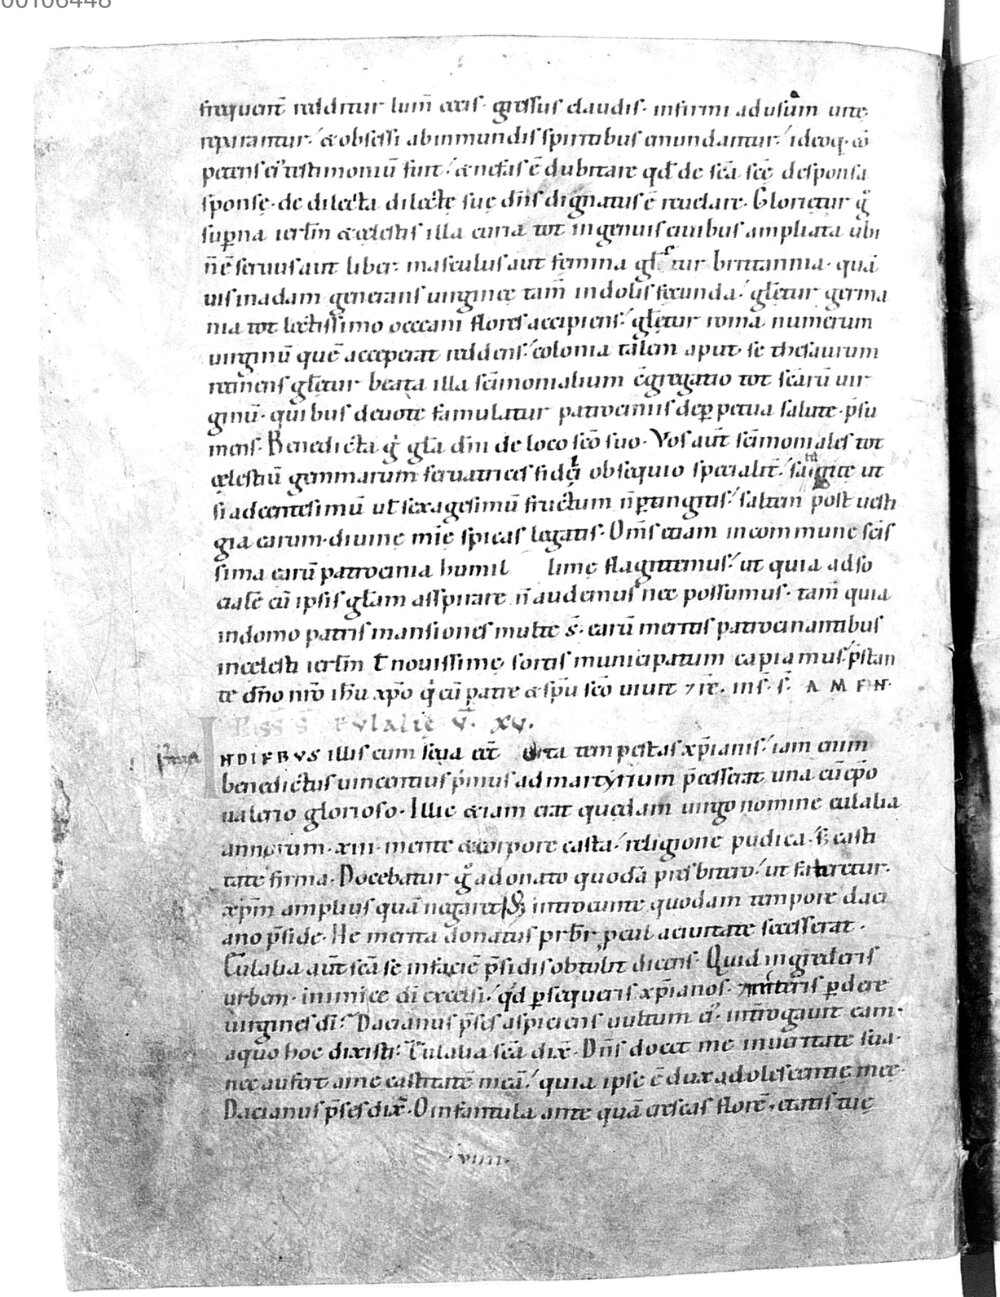 00106448
frequent̄ redditur lum̄ cecis· gressus claudis· infirmi ad usum uite
reparantur· &obsessi abinmundis spiritibus emundantur· ideoq·
petens ei testimoniū sunt· & nefas ē dubitare qd̄ de sc̄a sc̄ę desponsa
sponsę· de dilecta dilectę suę dn̄s dignatus ē reuelare· Glorietur g̊
sup̄na ierl̄m &cęlestis illa curia tot ingenuis ciuibus ampliata ubi
n̄ ē seruus aut liber· masculus aut femina gl̄etur britannia· quā
uis in adam generans uirgineę tam̄ indolis fecunda· gl̄etur germa
nia tot lectissimo occeani flores accipiens· gl̄etur roma numerum
uirginū quē acceperat reddens· colonia talem aput se thesaurum
retinens gl̄etur beata illa sc̄imonialium c̄gregatio tot sc̄arū uir
ginū· quibus deuote famulatur patrociniis de p̱petua salute· p̄su
mens· Benedicta g̊ gl̄a dn̄i de loco sc̄o suo· Vos aūt sc̄imoniales tot
cęlestiū gemmarum seruatrices fideli obsequio specialit̄· satagite ut
si ad centesimū ut̄ sexagesimū fructum n̄ p̱tingitis· saltem post uesti
gia earum· diuinę mīe spicas legatis· Om̄s etiam in commune sc̄is
sima earū patrocinia humil lime flagitemus· ut quia ad so
cialē cū ipsis gl̄am asspirare n̄ audemus nec possumus· tam̄ quia
in domo patris mansiones multe s̄· earū meritis patrocinantibus
in cęlesti ierl̄m ł nouissimę sortis municipatum capiamus· p̄stan
te dn̄o nr̄o ih̄u xp̄o q̇ cū patre & sp̄u sc̄o uiuit 7 r̄e· in s̄· s̄· AMEN·
Eulalie V̄· XV·
INDIEBVS illis cum seua eēt orta tempestas xp̄ianis· iam enim
benedictus uincentius p̄mus ad martyrium p̄cesserat una cū ep̄o
ualerio glorioso· Illic &iam erat quędam uirgo nomine eulalia
annorum· xiii· mente &corpore casta· religione pudica· & casti
tate firma· Docebatur g̊ a donato quodā presbitero· ut fateretur·
xp̄m amplius quā negaret· introeunte quodam tempore daci
ano p̄side· He merita donatus prb̄r p̱cul a ciuitate secesserat·
Eulalia aūt sc̄a se in faciē p̄sidis obtulit dicens· Quid ingrederis
urbem· inimice di excelsi· qd̄ p̱sequeris xp̄ianos· p̱dere
uirgines dī· Dacianus p̄ses aspiciens uultum ei· int̄rogauit eam·
a quo hoc dixisti· Eulalia sc̄a dix̄· Dn̄s docet me in ueritate sua·
nec aufert a me castitatē meā· quia ipse ē dux adolescentię meę·
Dacianus p̄ses dix̄· O infantula ante quā crescas florē· ętatis tuę
·VIIII·